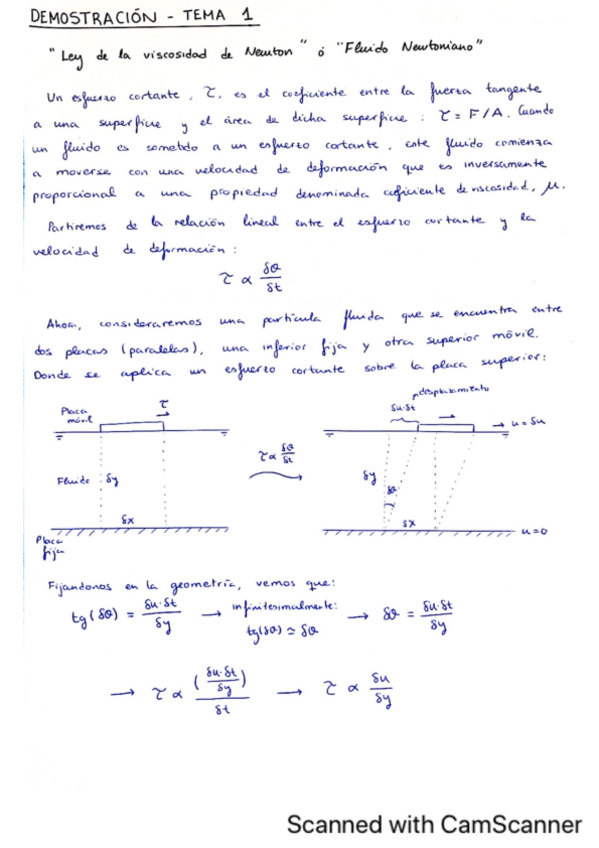 DEMOSTRACIÓN - TEMA 1
"Ley de la viscosidad de Newton" ó "Fluido Newtoniano"
Un esfuerzo cortante, τ, es el cociente entre la fuerza tangente
a una superficie y el área de dicha superficie : τ = F/A. Cuando
un fluido es sometido a un esfuerzo cortante, este fluido comienza
a moverse con una velocidad de deformación que es inversamente
proporcional a una propiedad denominada coeficiente de viscosidad, μ.
Partiremos de la relación lineal entre el esfuerzo cortante y la
velocidad de deformación :
τ ∝ δθ/δt
Ahora, consideraremos una partícula fluida que se encuentra entre
dos placas (paralelas), una inferior fija y otra superior móvil.
Donde se aplica un esfuerzo cortante sobre la placa superior:
Placa móvil
τ
Fluido
δy
δx
Placa fija
τ ∝ δθ/δt
desplazamiento
δu·δt
u = δu
δy
δθ
δx
u=0
Fijandonos en la geometría, vemos que:
tg(δθ) = δu·δt/δy → infinitesimalmente: tg(δθ) ≃ δθ → δθ = δu·δt/δy
→ τ ∝ (δu·δt/δy)/δt → τ ∝ δu/δy
Scanned with CamScanner